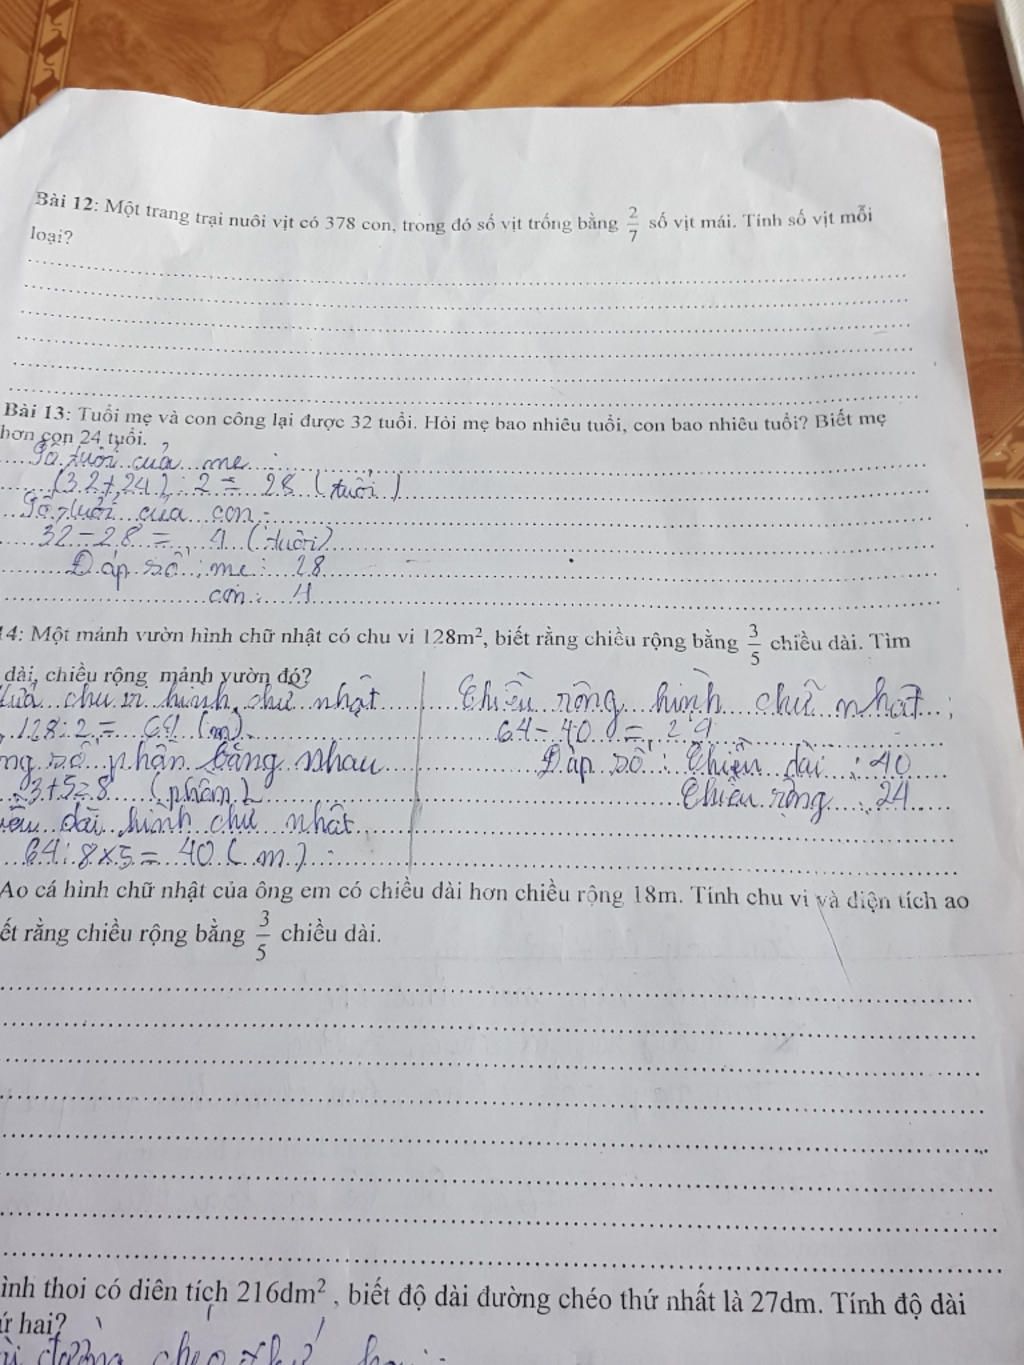 Bài 12: Một trang trại nuôi vịt có 378 con, trong đó số vịt trống bằng 2/7 số vịt mái. Tính số vịt mỗi
loại?
Bài 13: Tuổi mẹ và con công lại được 32 tuổi. Hỏi mẹ bao nhiêu tuổi, con bao nhiêu tuổi? Biết mẹ
hơn con 24 tuổi.
Số tuổi của mẹ :
(32+24) : 2 = 28 (tuổi)
Số tuổi của con :
32 - 28 = 4 (tuổi)
Đáp số : mẹ : 28
con : 4
14: Một mảnh vườn hình chữ nhật có chu vi 128m², biết rằng chiều rộng bằng 3/5 chiều dài. Tìm
dài, chiều rộng mảnh vườn đó?
nửa chu vi hình chữ nhật
128 : 2 = 64 (m)
ng số phần bằng nhau
3+5=8 (phần)
iều dài hình chữ nhật
64 : 8 x 5 = 40 (m)
Chiều rộng hình chữ nhật :
64 - 40 = 24
Đáp số : Chiều dài : 40
Chiều rộng : 24
Ao cá hình chữ nhật của ông em có chiều dài hơn chiều rộng 18m. Tính chu vi và diện tích ao
ết rằng chiều rộng bằng 3/5 chiều dài.
ình thoi có diên tích 216dm² , biết độ dài đường chéo thứ nhất là 27dm. Tính độ dài
ứ hai?
ài đường chéo thứ hai :